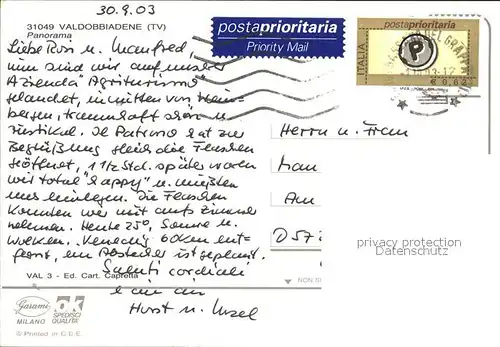 30.9.03
31049 VALDOBBIADENE (TV)
Panorama
postaprioritaria
Priority Mail
postaprioritaria
ITALIA
P
€ 0,62
Liebe Rosi u. Manfred,
nun sind wir auf unserer
Azienda "Agriturismo"
gelandet, inmitten von Wein-
bergen, traumhaft schön u.
rustikal. Il Patrono hat zur
Begrüßung gleich die Flaschen
geöffnet, 1 1/2 Std. später waren
wir total "happy" u. mußten
uns hinlegen. Die Flaschen
konnten wir mit aufs Zimmer
nehmen. Heute 25°, Sonne u.
Wolken. Venedig 60km ent-
fernt, ein Abstecher ist geplant.
Saluti cordiali
e ciao ciao
Horst u.
Herrn u. Frau
Man
Am
D57
privacy protection
Datenschutz
VAL 3 - Ed. Cart. Capretta
NON
Garami
MILANO
OK
SPEDISCI
QUALITÀ
© Printed in C.E.E.